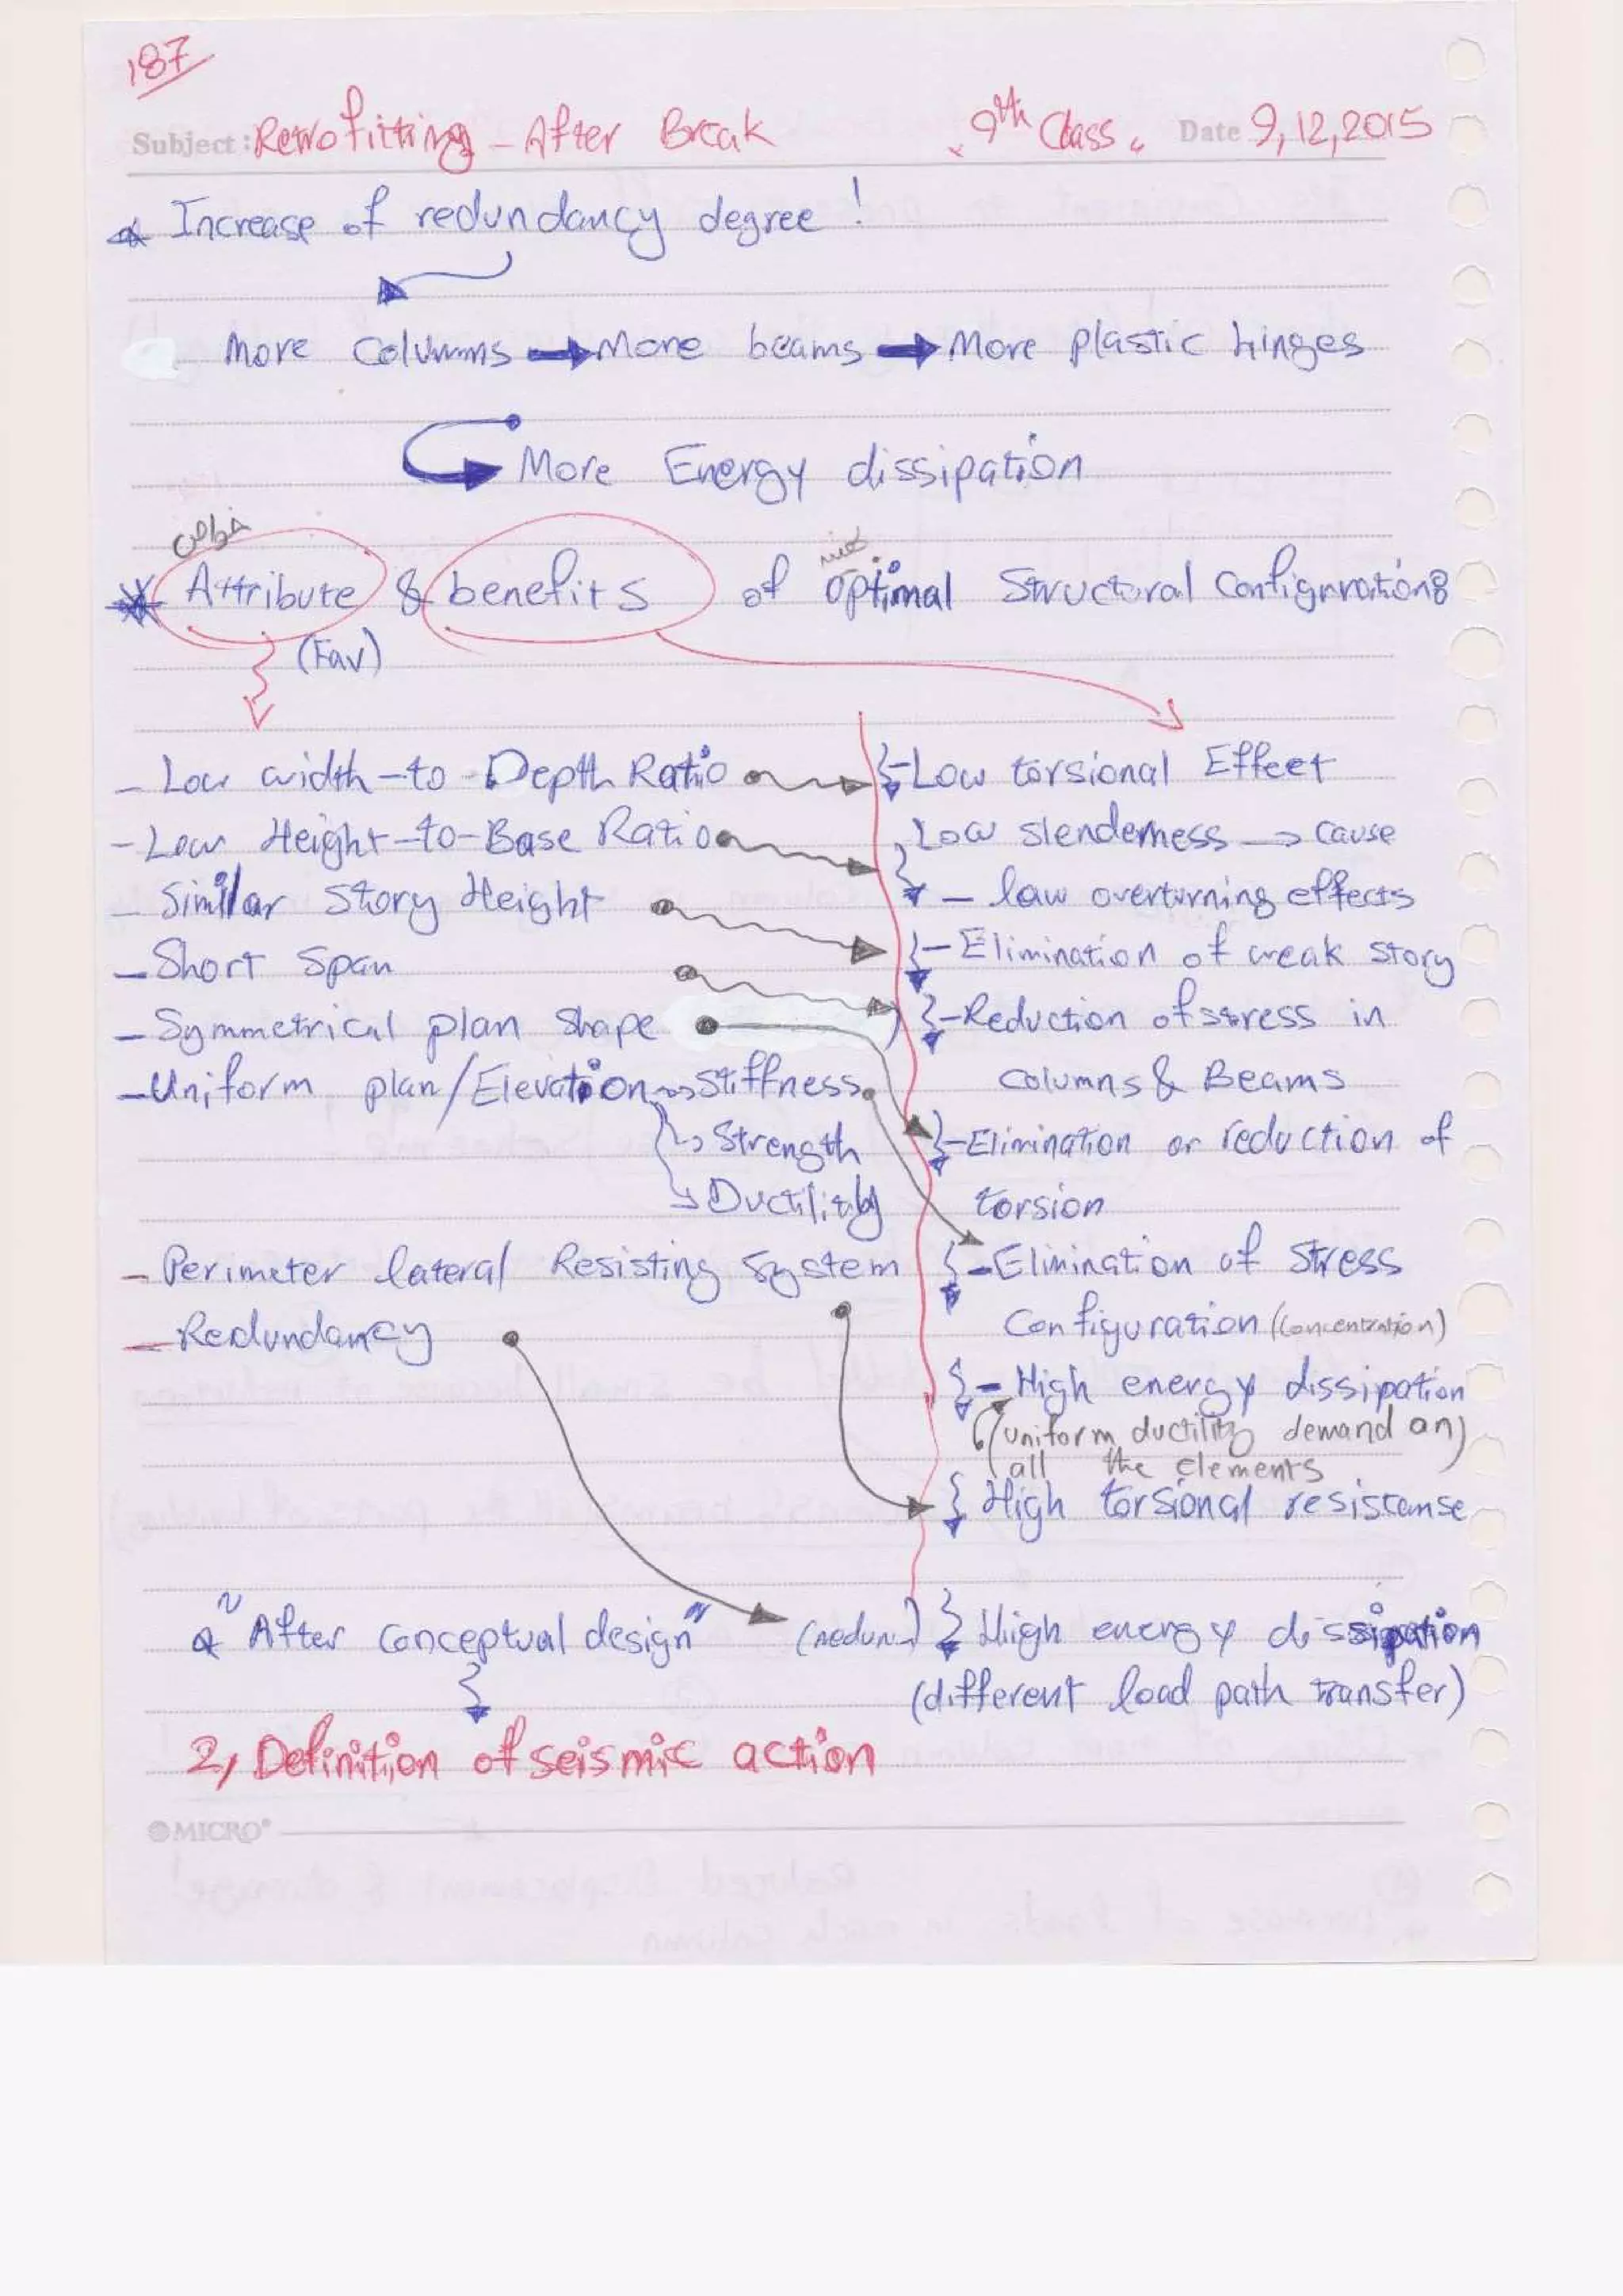 187
Subject: Retrofitting - After Break "9th Class" Date 9,12,2015
* Increase of redundancy degree!
More Columns → More beams → More plastic hinges
More Energy dissipation
خواص
* Attribute & benefits of optimal Structural Configurations
(Fav)
- Low width-to-Depth Ratio
- Low Height-to-Base Ratio
- Similar Story Height
- Short Span
- Symmetrical plan Shape
- Uniform plan/Elevation → Stiffness
→ Strength
→ Ductility
- Perimeter lateral Resisting System
- Redundancy
- Low torsional Effect
Low slenderness → cause
- law overturning effects
- Elimination of weak story
- Reduction of stress in
columns & Beams
- Elimination or reduction of
torsion
- Elimination of Stress
Configuration (Concentration)
- High energy dissipation
(uniform ductility demand on
all the elements)
High torsional resistanse
* "After Conceptual design"
(redun.) High energy dissipation
(different load path transfer)
2, Definition of seismic action
MICRO